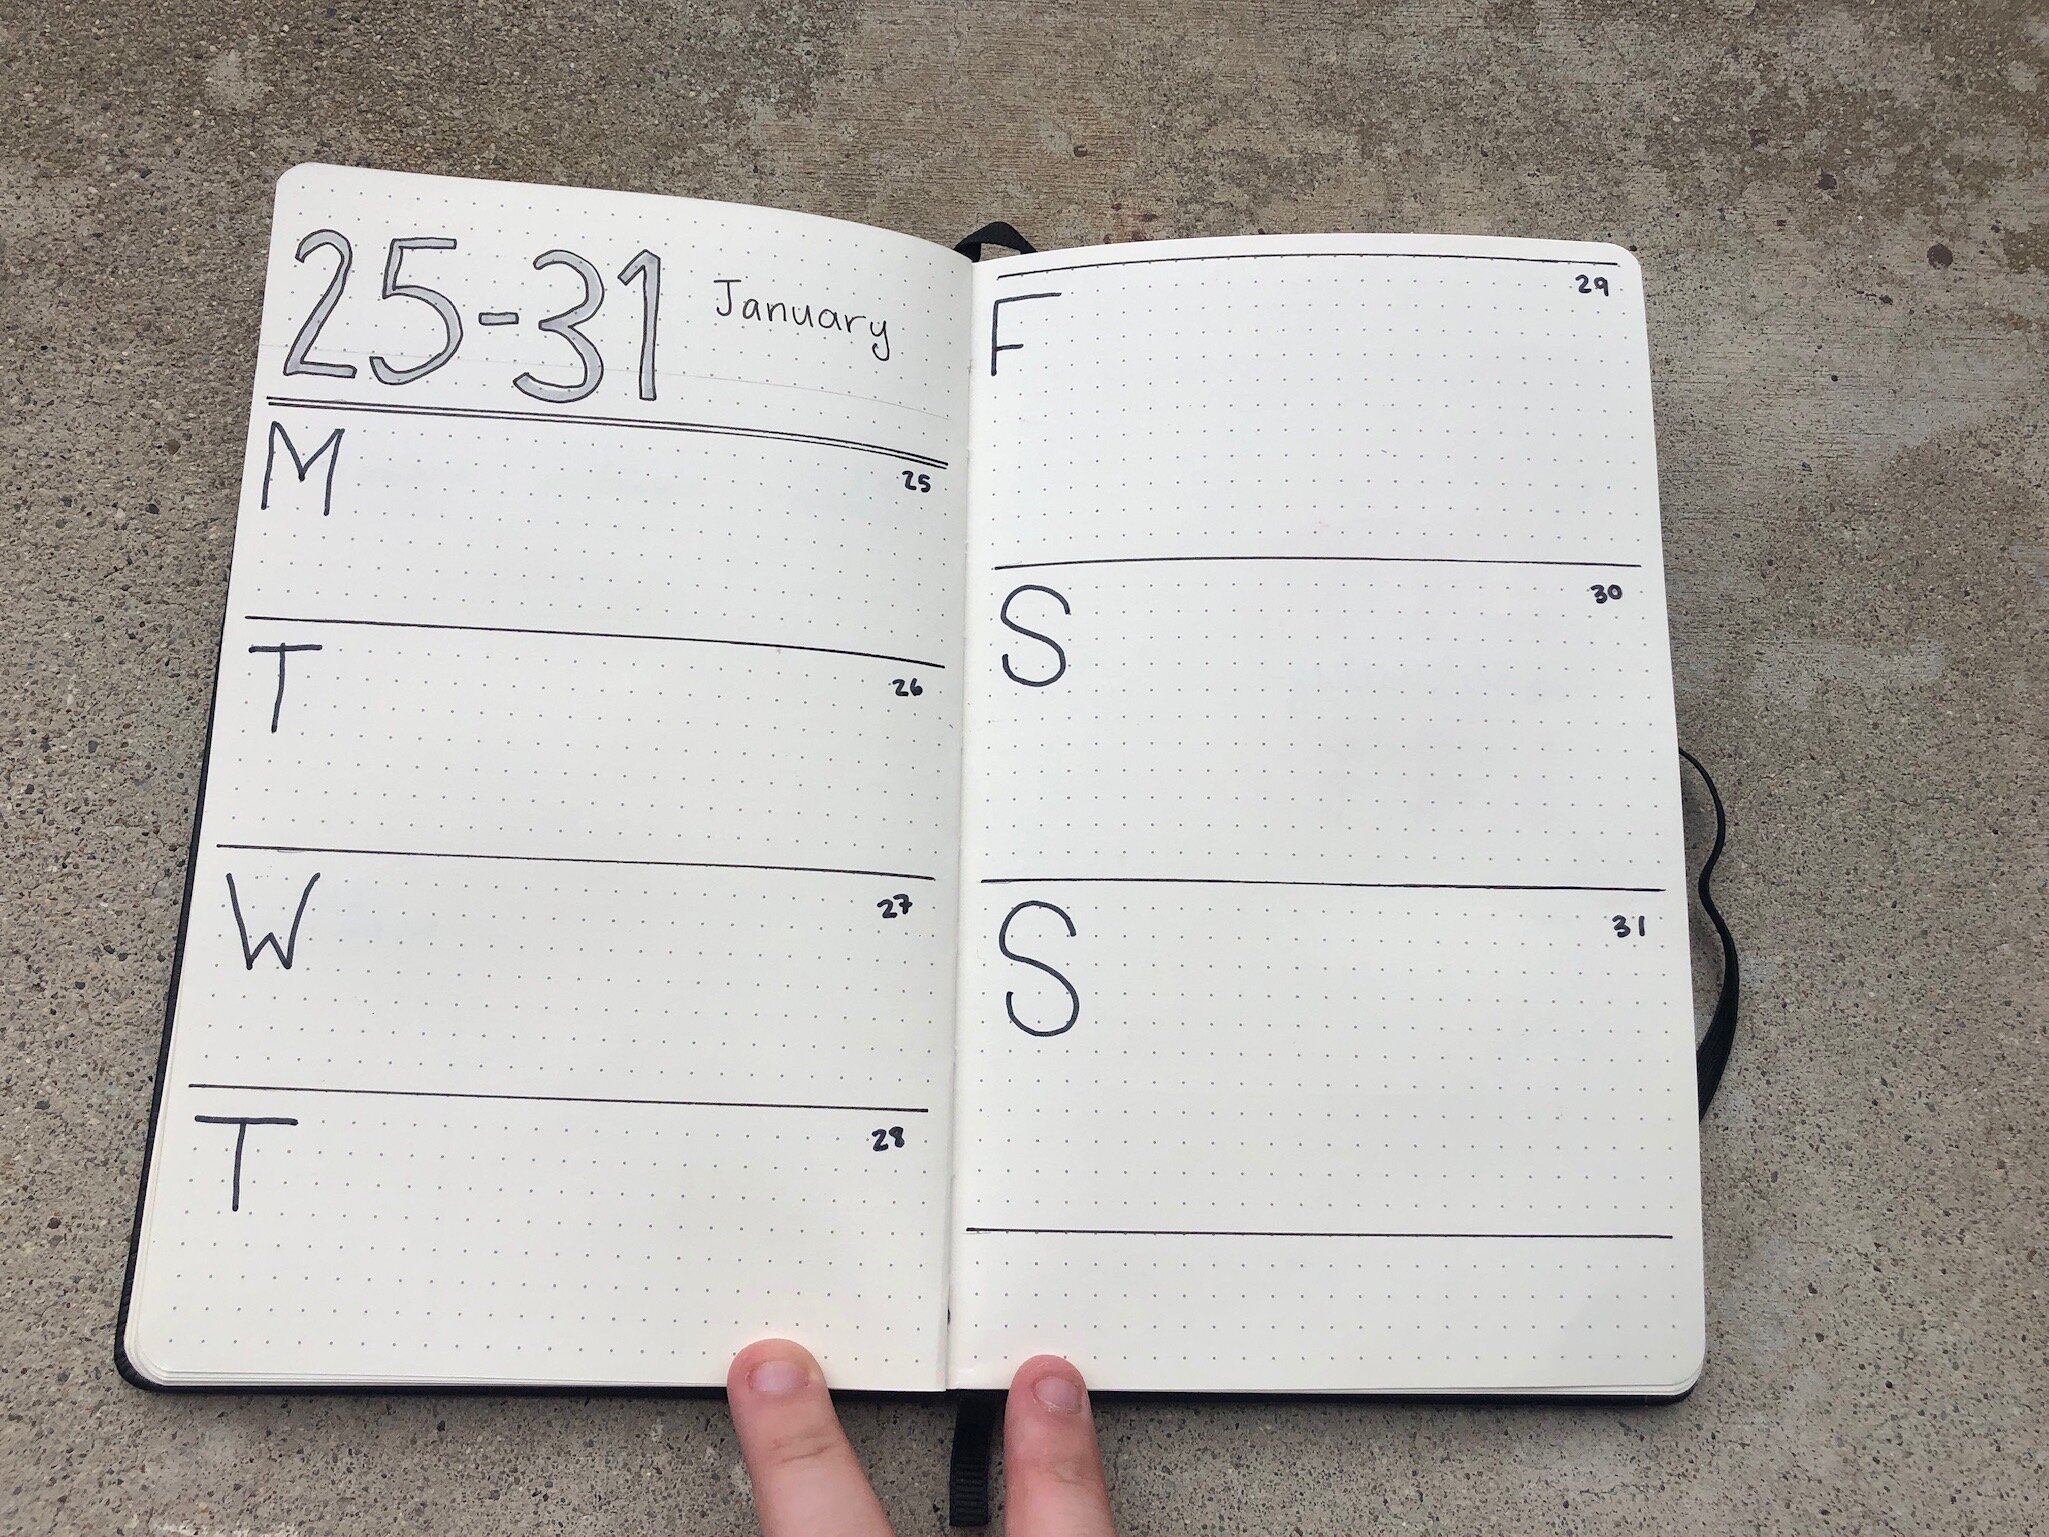 25-31 January
M 25
T 26
W 27
T 28
F 29
S 30
S 31